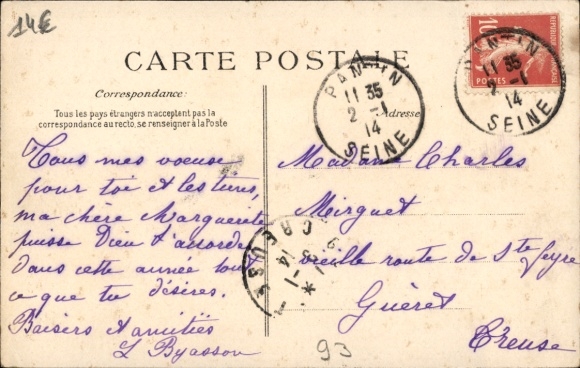 14€
CARTE POSTALE
Correspondance:
Tous les pays étrangers n'acceptent pas la
correspondance au recto, se renseigner à la Poste
Adresse
10
POSTES
PANTIN
11 35
2 -1
14
SEINE
PANTIN
11 35
2 -1
14
SEINE
Tous mes voeuse
pour toi et les tiens,
ma chère Marguerite
puisse Dieu t'accorder
dans cette année tout
ce que tu désires.
Baisers et amitiés
L Byasson
CREUSE
-1
14
Madame Charles
Mirguet
vieille route de Ste Feyre
Guéret
Creuse
93